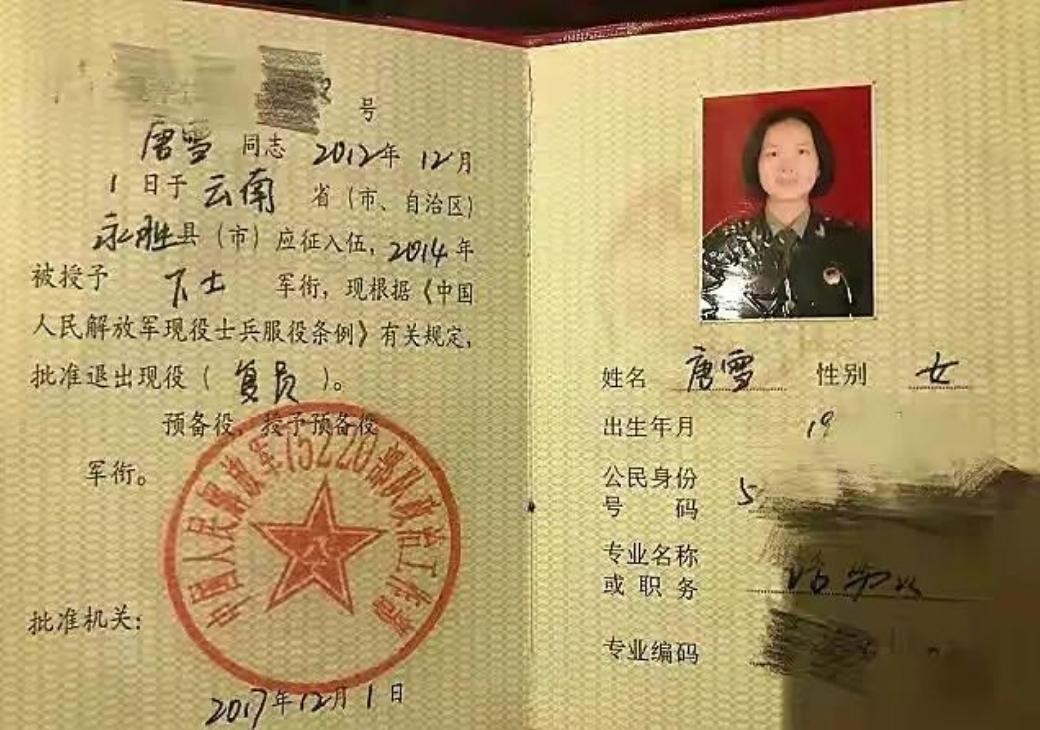 号
唐雪 同志 2012年 12月
1 日于 云南 省（市、自治区）
永胜县（市）应征入伍，2014年
被授予 下士 军衔，现根据《中国
人民解放军现役士兵服役条例》有关规定，
批准退出现役（ 复员 ）。
预备役，授予预备役
军衔。
中国人民解放军75220部队政治工作部
批准机关：
2017年12月1日
姓名 唐雪 性别 女
出生年月 19
公民身份
号 码 5
专业名称
或职务
专业编码